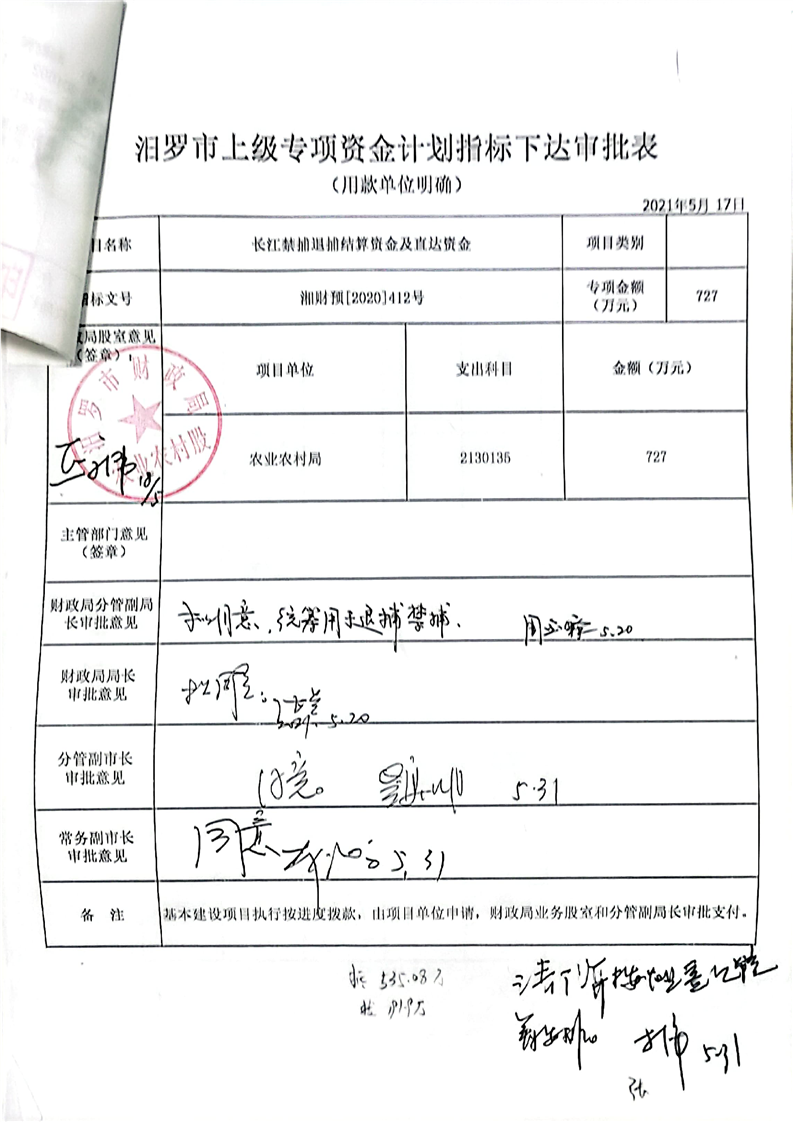 汨罗市上级专项资金计划指标下达审批表
（用款单位明确）
2021年5月 17日
目名称
长江禁捕退捕结算资金及直达资金
项目类别
指标文号
湘财预[2020]412号
专项金额
（万元）
727
政局股室意见
（签章）：
项目单位
支出科目
金额（万元）
汨罗市财政局
农业农村股
18/5
农业农村局
2130135
727
主管部门意见
（签章）
财政局分管副局
长审批意见
拟同意，统筹用于退捕禁捕。
5.20
财政局局长
审批意见
拟同意。
2021.5.20
分管副市长
审批意见
同意。
5.31
常务副市长
审批意见
同意
5.31
备 注
基本建设项目执行按进度拨款，由项目单位申请，财政局业务股室和分管副局长审批支付。
535.08万
5.31